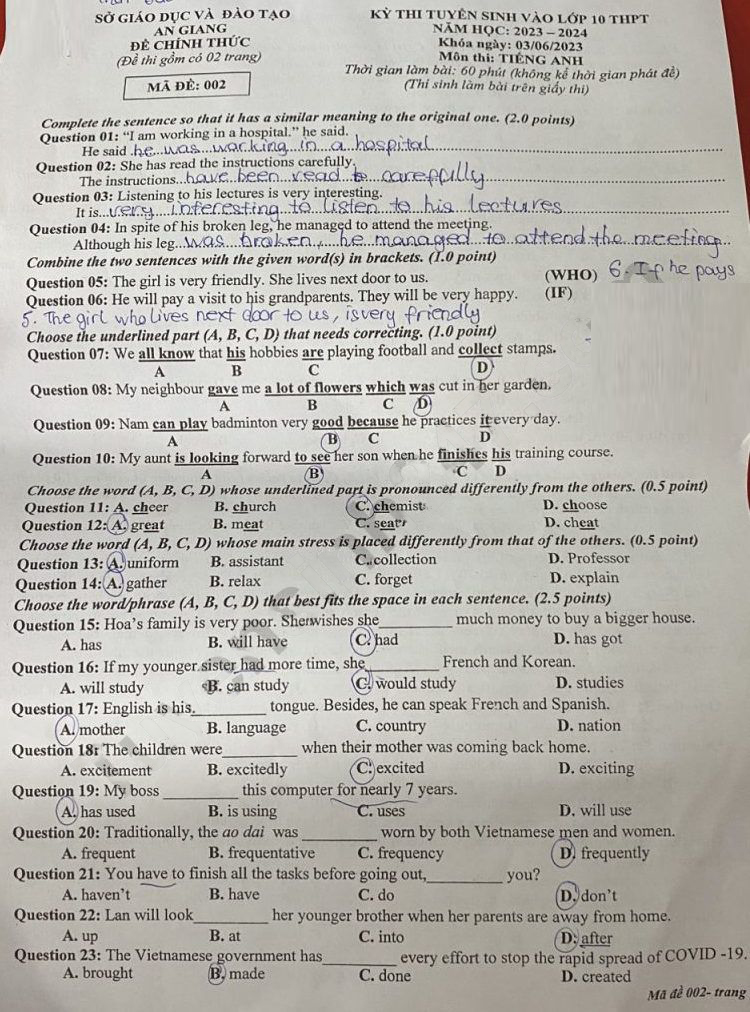 SỞ GIÁO DỤC VÀ ĐÀO TẠO
AN GIANG
ĐỀ CHÍNH THỨC
(Đề thi gồm có 02 trang)
MÃ ĐỀ: 002
KỲ THI TUYỂN SINH VÀO LỚP 10 THPT
NĂM HỌC: 2023 – 2024
Khóa ngày: 03/06/2023
Môn thi: TIẾNG ANH
Thời gian làm bài: 60 phút (không kể thời gian phát đề)
(Thí sinh làm bài trên giấy thi)
Complete the sentence so that it has a similar meaning to the original one. (2.0 points)
Question 01: “I am working in a hospital.” he said.
He said he was working in a hospital
Question 02: She has read the instructions carefully.
The instructions have been read carefully
Question 03: Listening to his lectures is very interesting.
It is very interesting to listen to his lectures
Question 04: In spite of his broken leg, he managed to attend the meeting.
Although his leg was broken, he managed to attend the meeting
Combine the two sentences with the given word(s) in brackets. (1.0 point)
Question 05: The girl is very friendly. She lives next door to us. (WHO) 6. If he pays
Question 06: He will pay a visit to his grandparents. They will be very happy. (IF)
5. The girl who lives next door to us, is very friendly
Choose the underlined part (A, B, C, D) that needs correcting. (1.0 point)
Question 07: We all know that his hobbies are playing football and collect stamps.
A B C D
Question 08: My neighbour gave me a lot of flowers which was cut in her garden.
A B C D
Question 09: Nam can play badminton very good because he practices it every day.
A B C D
Question 10: My aunt is looking forward to see her son when he finishes his training course.
A B C D
Choose the word (A, B, C, D) whose underlined part is pronounced differently from the others. (0.5 point)
Question 11: A. cheer B. church C. chemist D. choose
Question 12: A. great B. meat C. seat D. cheat
Choose the word (A, B, C, D) whose main stress is placed differently from that of the others. (0.5 point)
Question 13: A. uniform B. assistant C. collection D. Professor
Question 14: A. gather B. relax C. forget D. explain
Choose the word/phrase (A, B, C, D) that best fits the space in each sentence. (2.5 points)
Question 15: Hoa’s family is very poor. She wishes she________ much money to buy a bigger house.
A. has B. will have C. had D. has got
Question 16: If my younger sister had more time, she________ French and Korean.
A. will study B. can study C. would study D. studies
Question 17: English is his________ tongue. Besides, he can speak French and Spanish.
A. mother B. language C. country D. nation
Question 18: The children were________ when their mother was coming back home.
A. excitement B. excitedly C. excited D. exciting
Question 19: My boss ________ this computer for nearly 7 years.
A. has used B. is using C. uses D. will use
Question 20: Traditionally, the ao dai was ________ worn by both Vietnamese men and women.
A. frequent B. frequentative C. frequency D. frequently
Question 21: You have to finish all the tasks before going out,________ you?
A. haven’t B. have C. do D. don’t
Question 22: Lan will look________ her younger brother when her parents are away from home.
A. up B. at C. into D. after
Question 23: The Vietnamese government has________ every effort to stop the rapid spread of COVID -19.
A. brought B. made C. done D. created
Mã đề 002- trang